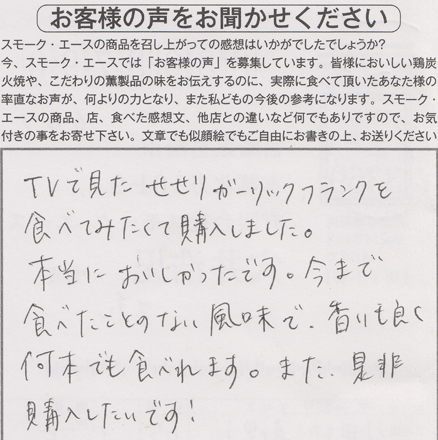 お客様の声をお聞かせください
スモーク・エースの商品を召し上がっての感想はいかがでしたでしょうか?
今、スモーク・エースでは「お客様の声」を募集しています。皆様においしい鶏炭
火焼や、こだわりの薫製品の味をお伝えするのに、実際に食べて頂いたあなた様の
率直なお声が、何よりの力となり、また私どもの今後の参考になります。スモーク・
エースの商品、店、食べた感想文、他店との違いなど何でもありですので、お気
付きの事をお寄せ下さい。文章でも似顔絵でもご自由にお書きの上、お送りください
TVで見た せせりガーリックフランクを
食べてみたくて購入しました。
本当においしかったです。今まで
食べたことのない風味で、香いも良く
何本でも食べれます。また、是非
購入したいです!